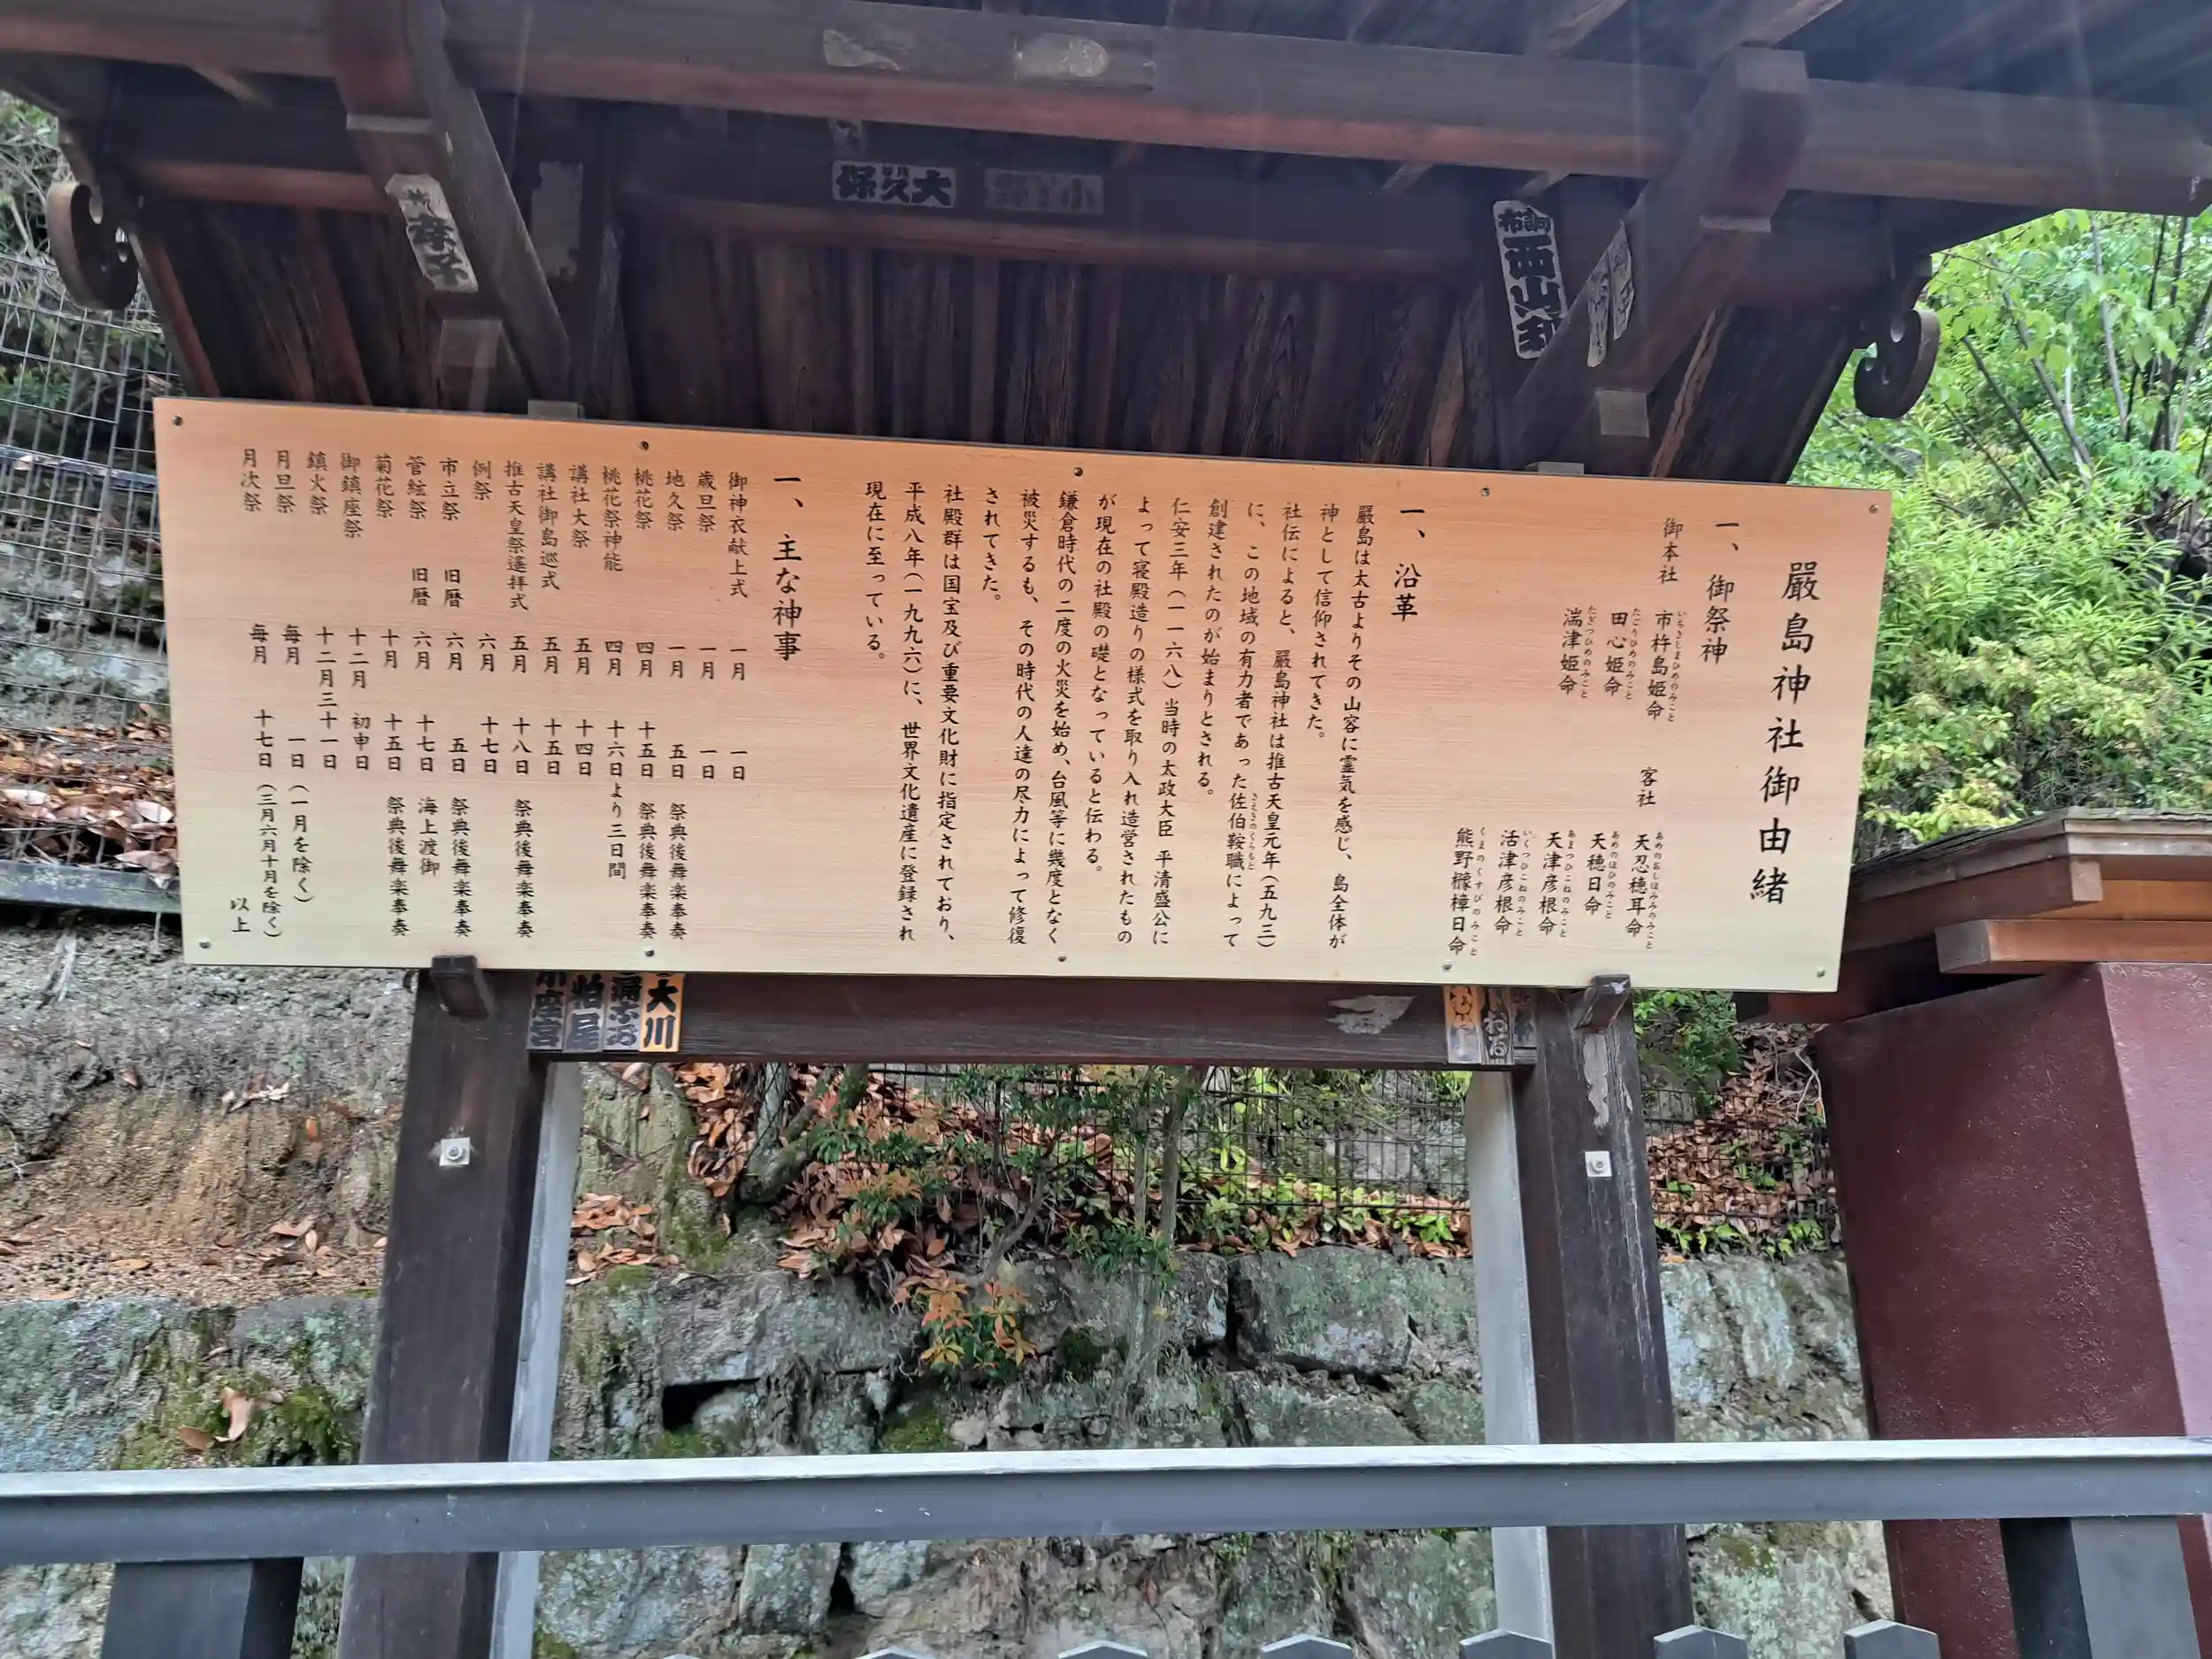 嚴島神社御由緒
一、御祭神
御本社
市杵島姫命
いちきしまひめのみこと
田心姫命
たごりひめのみこと
湍津姫命
たぎつひめのみこと
客社
天忍穂耳命
あめのおしほみみのみこと
天穂日命
あめのほひのみこと
天津彦根命
あまつひこねのみこと
活津彦根命
いくつひこねのみこと
熊野櫲樟日命
くまのくすびのみこと
一、沿革
嚴島は太古よりその山容に霊気を感じ、島全体が
神として信仰されてきた。
社伝によると、嚴島神社は推古天皇元年(五九三)
に、この地域の有力者であった佐伯鞍職によって
さえきのくらもと
創建されたのが始まりとされる。
仁安三年(一一六八)当時の太政大臣 平清盛公に
よって寝殿造りの様式を取り入れ造営されたもの
が現在の社殿の礎となっていると伝わる。
鎌倉時代の二度の火災を始め、台風等に幾度となく
被災するも、その時代の人達の尽力によって修復
されてきた。
社殿群は国宝及び重要文化財に指定されており、
平成八年(一九九六)に、世界文化遺産に登録され
現在に至っている。
一、主な神事
御神衣献上式 一月 一日
歳旦祭 一月 一日
地久祭 一月 五日 祭典後舞楽奉奏
桃花祭 四月 十五日 祭典後舞楽奉奏
桃花祭神能 四月 十六日より三日間
講社大祭 五月 十四日
講社御島巡式 五月 十五日
推古天皇祭遙拝式 五月 十八日 祭典後舞楽奉奏
例祭 六月 十七日
市立祭 旧暦 六月 五日 祭典後舞楽奉奏
管絃祭 旧暦 六月 十七日 海上渡御
菊花祭 十月 十五日 祭典後舞楽奉奏
御鎮座祭 十二月 初申日
鎮火祭 十二月三十一日
月旦祭 毎月 一日(一月を除く)
月次祭 毎月 十七日(三月六月十月を除く)
以上
大久保
小野
西山
孝子
大川
柏尾